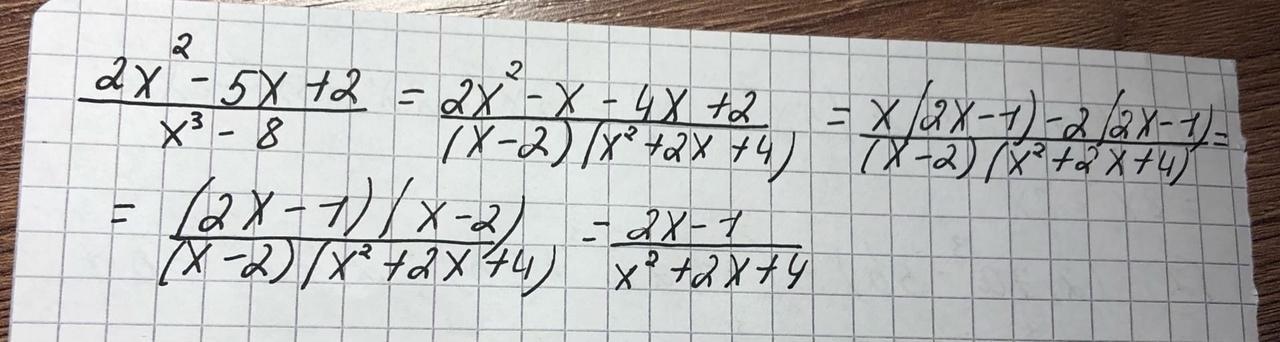 (2x² - 5x + 2)/(x³ - 8) = (2x² - x - 4x + 2)/((x-2)(x² + 2x + 4)) = (x(2x-1) - 2(2x-1))/((x-2)(x² + 2x + 4)) =
= ((2x-1)(x-2))/((x-2)(x² + 2x + 4)) = (2x-1)/(x² + 2x + 4)